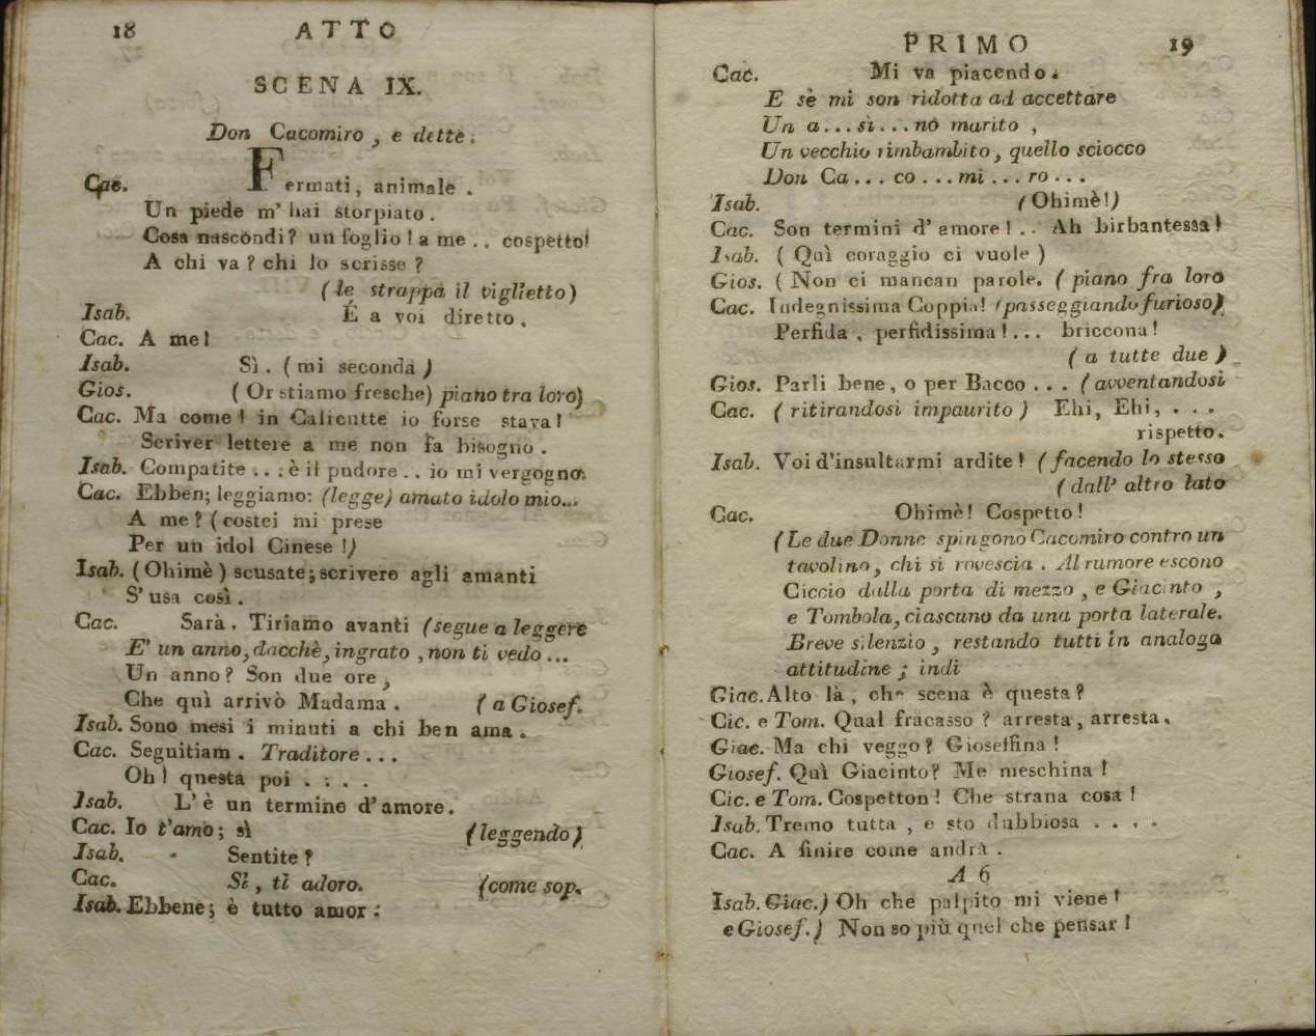 18 ATTO
SCENA IX.
Don Cacomiro, e dette.
Cac. Fermati, animale.
Un piede m' hai storpiato.
Cosa nascondi? un foglio! a me .. cospetto!
A chi va? chi lo scrisse?
(le strappa il viglietto)
Isab. É a voi diretto.
Cac. A me!
Isab. Sì. (mi seconda)
Gios. (Or stiamo fresche) piano tra loro)
Cac. Ma come! in Calicutte io forse stava!
Scriver lettere a me non fa bisogno.
Isab. Compatite ... è il pudore .. io mi vergogno.
Cac. Ebben; leggiamo: (legge) amato idolo mio...
A me? (costei mi prese
Per un idol Cinese!)
Isab. (Ohimè) scusate; scrivere agli amanti
S' usa così.
Cac. Sarà. Tiriamo avanti (segue a leggere
E' un anno, dacchè, ingrato, non ti vedo ...
Un anno? Son due ore,
Che quì arrivò Madama. (a Giosef.
Isab. Sono mesi i minuti a chi ben ama.
Cac. Seguitiam. Traditore ...
Oh! questa poi ....
Isab. L' è un termine d' amore.
Cac. Io t'amo; sì (leggendo)
Isab. Sentite?
Cac. Sì, tì adoro. (come sop.
Isab. Ebbene; è tutto amor:
PRIMO 19
Cac. Mi va piacendo.
E sè mi son ridotta ad accettare
Un a...sì...no marito,
Un vecchio rimbambito, quello sciocco
Don Ca...co...mi...ro...
Isab. (Ohimè!)
Cac. Son termini d' amore! .. Ah birbantessa!
Isab. (Quì coraggio ci vuole)
Gios. (Non ci mancan parole. (piano fra loro
Cac. Indegnissima Coppia! (passeggiando furioso)
Perfida, perfidissima!... briccona!
(a tutte due)
Gios. Parli bene, o per Bacco ... (avventandosi
Cac. (ritirandosi impaurito) Ehi, Ehi, ...
rispetto.
Isab. Voi d'insultarmi ardite! (facendo lo stesso
(dall' altro lato
Cac. Ohimè! Cospetto!
(Le due Donne spingono Cacomiro contro un
tavolino, chi si rovescia. Al rumore escono
Ciccio dalla porta di mezzo, e Giacinto,
e Tombola, ciascuno da una porta laterale.
Breve silenzio, restando tutti in analoga
attitudine; indi
Giac. Alto là, che scena è questa?
Cic. e Tom. Qual fracasso? arresta, arresta.
Giac. Ma chi veggo? Gioseffina!
Giosef. Quì Giacinto? Me meschina!
Cic. e Tom. Cospetton! Che strana cosa!
Isab. Tremo tutta, e sto dubbiosa ....
Cac. A finire come andrà.
A 6
Isab. Giac.) Oh che palpito mi viene!
e Giosef.) Non so più quel che pensar!